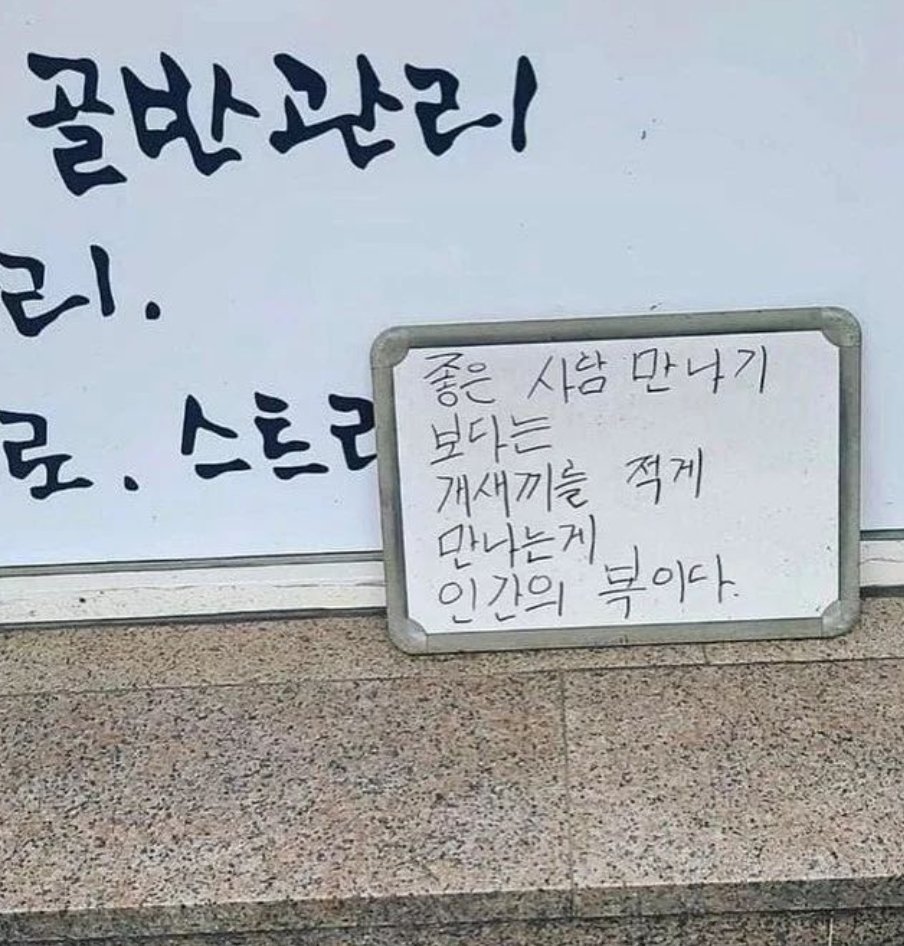 골반관리
리.
로. 스트리
좋은 사람 만나기
보다는
개새끼를 적게
만나는게
인간의 복이다.